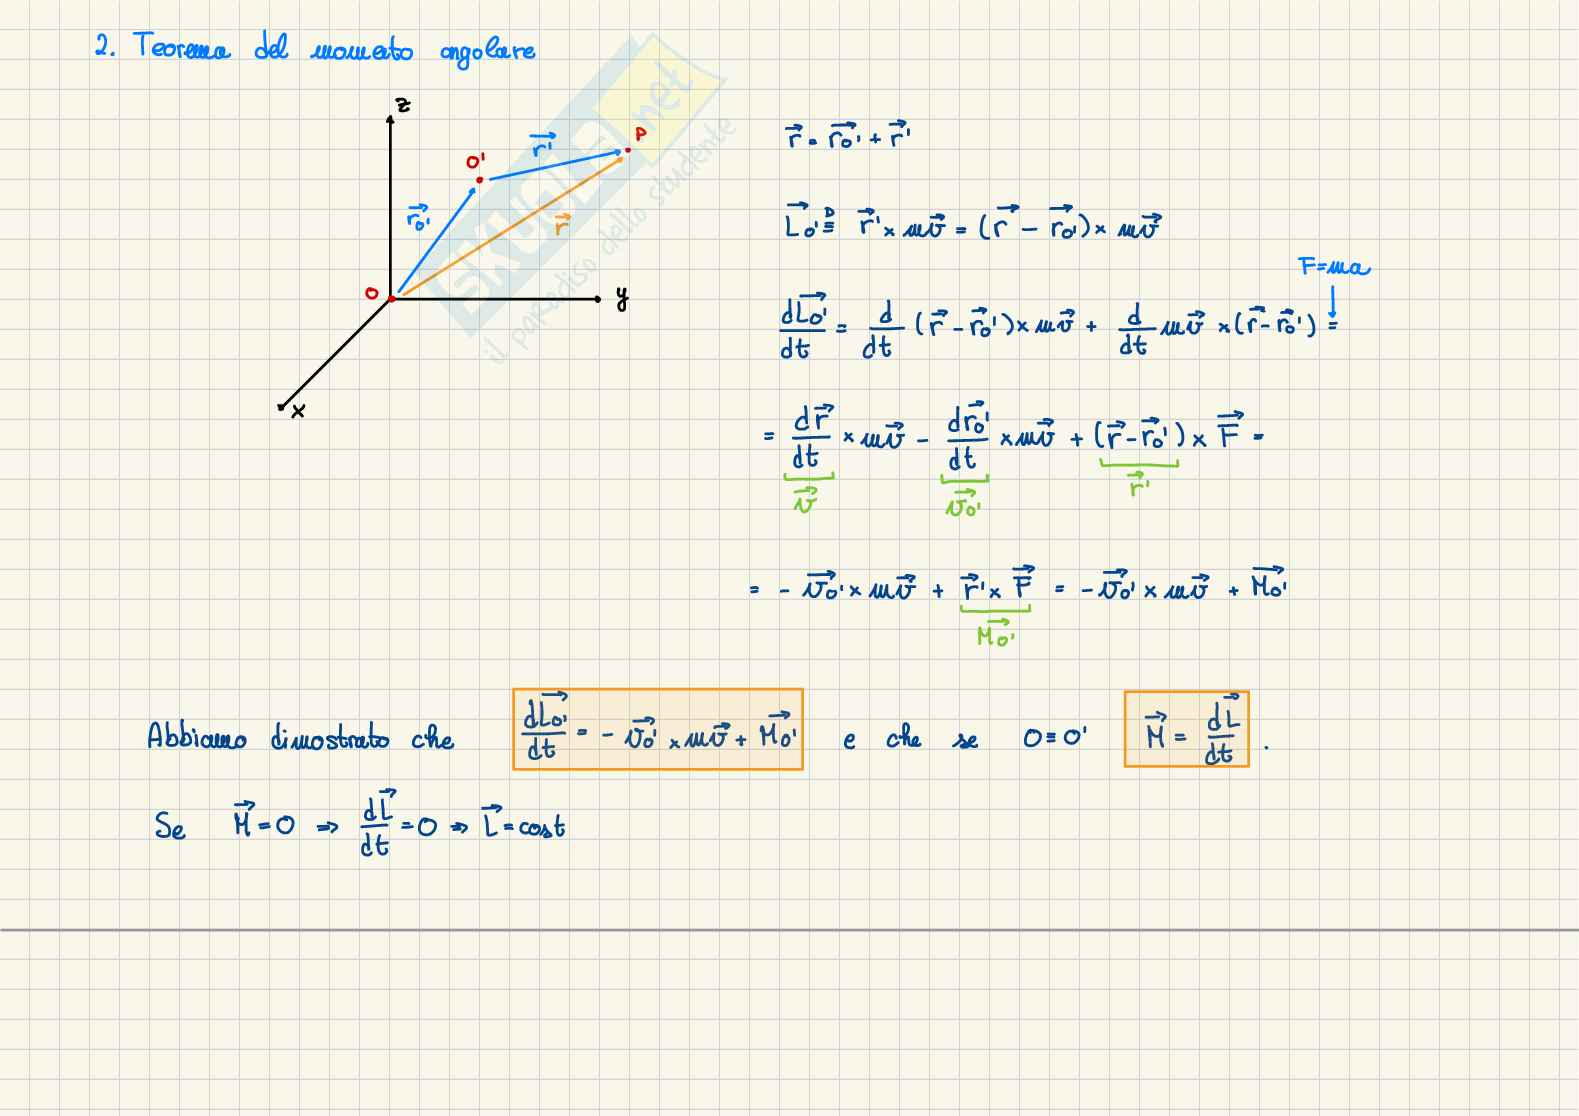 2. Teorema del momento angolare
z
O'
r⃗'
P
r⃗O'
r⃗
O
y
x
SKUOLA.net
il paradiso dello studente
r⃗ = r⃗O' + r⃗'
L⃗O' ≝ r⃗' × mv⃗ = (r⃗ - r⃗O') × mv⃗
F=ma
dL⃗O'/dt = d/dt (r⃗ - r⃗O') × mv⃗ + d/dt mv⃗ × (r⃗ - r⃗O') =
= dr⃗/dt × mv⃗ - dr⃗O'/dt × mv⃗ + (r⃗ - r⃗O') × F⃗ =
v⃗ v⃗O' r⃗'
= - v⃗O' × mv⃗ + r⃗' × F⃗ = - v⃗O' × mv⃗ + M⃗O'
M⃗O'
Abbiamo dimostrato che dL⃗O'/dt = - v⃗O' × mv⃗ + M⃗O' e che se O≡O' M⃗ = dL⃗/dt .
Se M⃗ = 0 ⇒ dL⃗/dt = 0 ⇒ L⃗ = cost